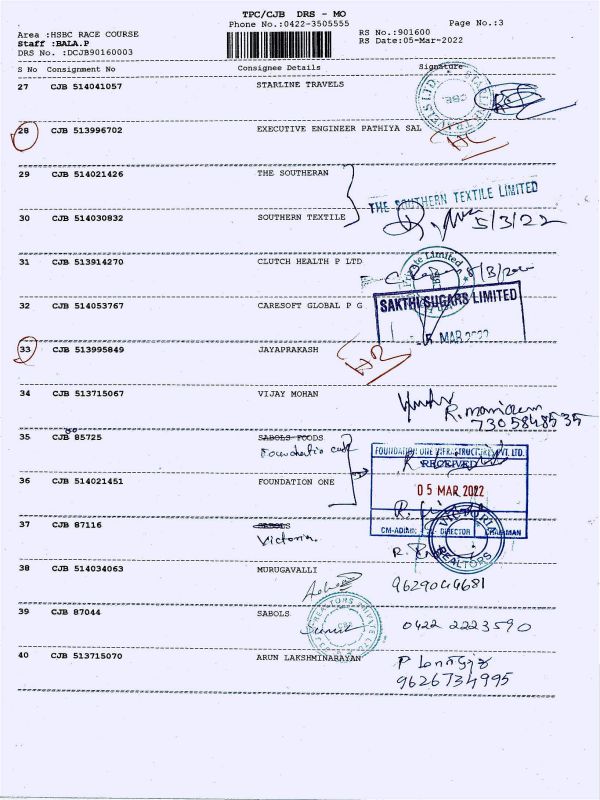 TPC/CJB DRS - MO
Phone No.:0422-3505555 Page No.:3
Area :HSBC RACE COURSE RS No.:901600
Staff :BALA.P RS Date:05-Mar-2022
DRS No. :DCJB90160003
S No Consignment No Consignee Details Signature
27 CJB 514041057 STARLINE TRAVELS
28 CJB 513996702 EXECUTIVE ENGINEER PATHIYA SAL
29 CJB 514021426 THE SOUTHERAN
THE SOUTHERN TEXTILE LIMITED
30 CJB 514030832 SOUTHERN TEXTILE 5/3/22
31 CJB 513914270 CLUTCH HEALTH P LTD
SAKTHI SUGARS LIMITED
32 CJB 514053767 CARESOFT GLOBAL P G
MAR 2022
33 CJB 513995849 JAYAPRAKASH
34 CJB 513715067 VIJAY MOHAN
7305848535
35 CJB 85725 SABOLS FOODS
FOUNDATION ONE INFRASTRUCTURES PVT. LTD.
RECEIVED
36 CJB 514021451 FOUNDATION ONE
05 MAR 2022
37 CJB 87116 SABOLS
Victoria.
CM-ADMIN DIRECTOR CHAIRMAN
VICTORIA REALTORS
38 CJB 514034063 MURUGAVALLI
9629044681
39 CJB 87044 SABOLS
0422 2223590
40 CJB 513715070 ARUN LAKSHMINARAYAN
9626734995